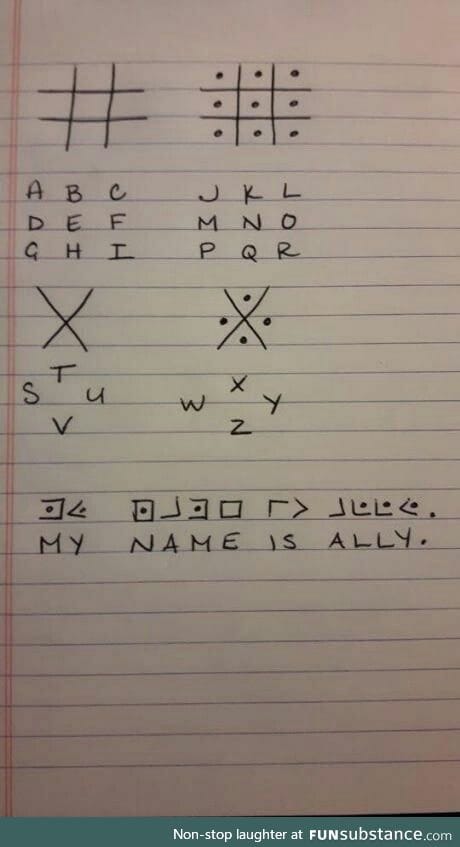 A B C J K L
D E F M N O
G H I P Q R
T X
S U W Y
V Z
MY NAME IS ALLY.
Non-stop laughter at FUNsubstance.com